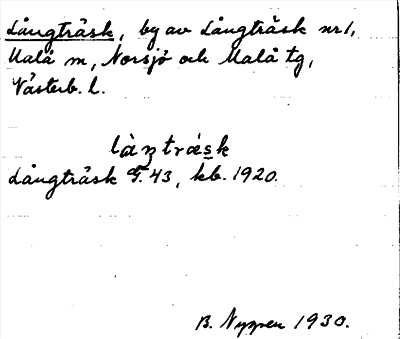 Långträsk, by av Långträsk nr 1,
Malå m, Norsjö och Malå tg,
Västerb. l.
làŋtræsk
Långträsk G. 43, kb. 1920.
B. Nyman 1930.